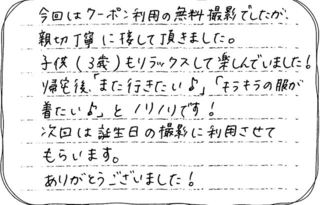 今回はクーポン利用の無料撮影でしたが、
親切丁寧に接して頂きました。
子供(3歳)もリラックスして楽しんでいました!
帰宅後、「また行きたい♪」「キラキラの服が
着たい♪」とノリノリです!
次回は誕生日の撮影に利用させて
もらいます。
ありがとうございました!